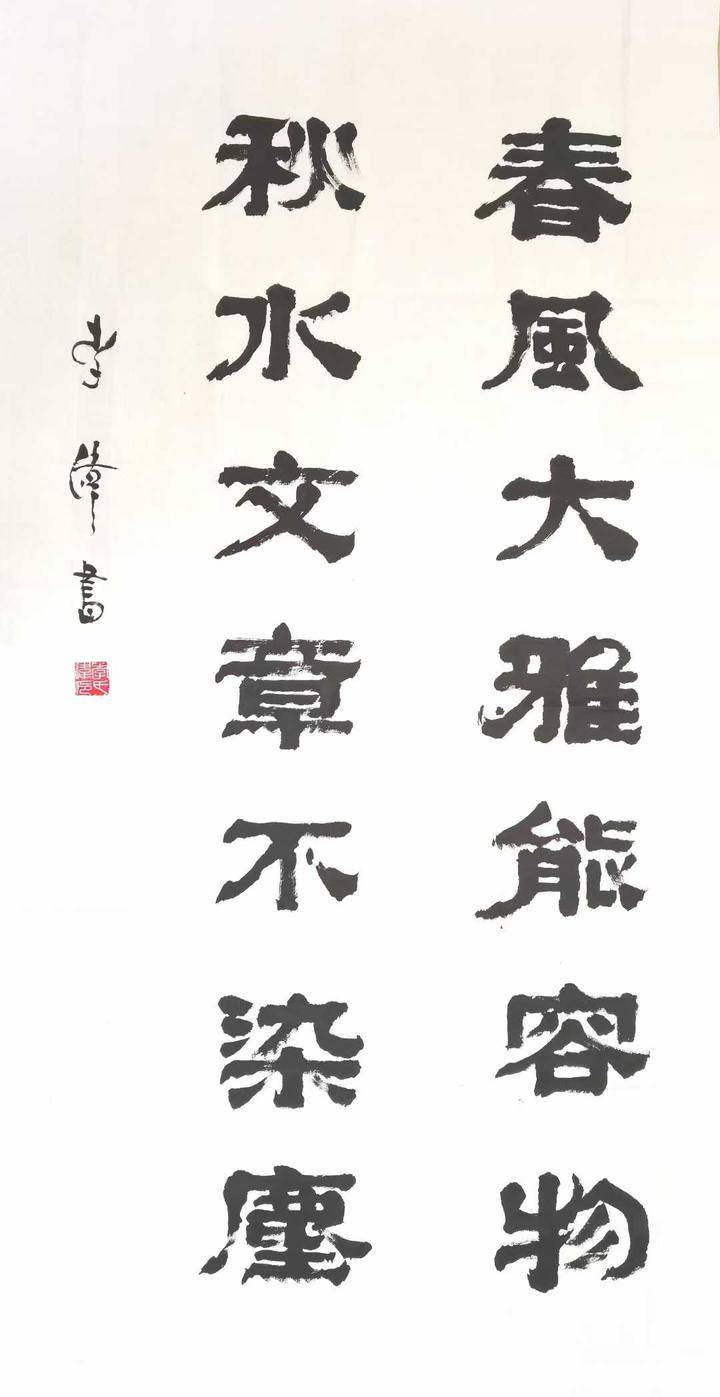 春風大雅能容物
秋水文章不染塵
李偉書